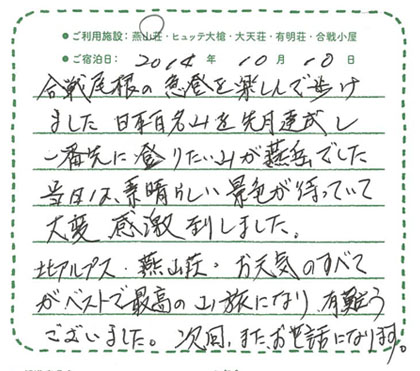 ●ご利用施設：燕山荘・ヒュッテ大槍・大天荘・有明荘・合戦小屋
●ご宿泊日： 2014年 10月 10日
合戦尾根の急登を楽しんで歩け
ました 日本百名山を先月達成し
一番先に登りたい山が燕岳でした
当日は、素晴らしい景色が待っていて
大変 感激到しました。
北アルプス・燕山荘・お天気のすべて
がベストで最高の山旅になり 有難う
ございました。次回、また、お世話になります。